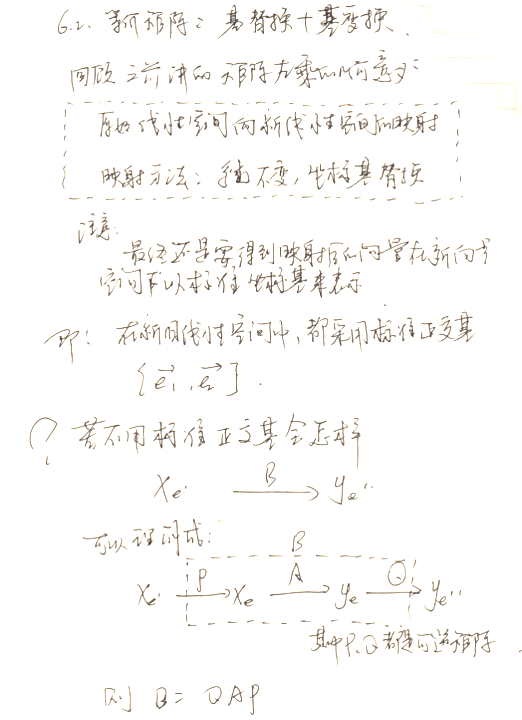 6.2. 等价矩阵：基替换＋基变换.
回顾之前讲的矩阵左乘的几何意义：
原始线性空间向新线性空间的映射
映射方法：系数不变，坐标基替换
注意：
最终还是要得到映射后的向量在新向量
空间下以标准坐标基来表示
即：在新旧线性空间中，都采用标准正交基
{e₁, e₂}.
? 若不用标准正交基会怎样
Xe' B→ ye''
可以理解成：
B
Xe' P→ Xe A→ ye Q→ ye''
其中P、Q都是可逆矩阵
则 B = QAP